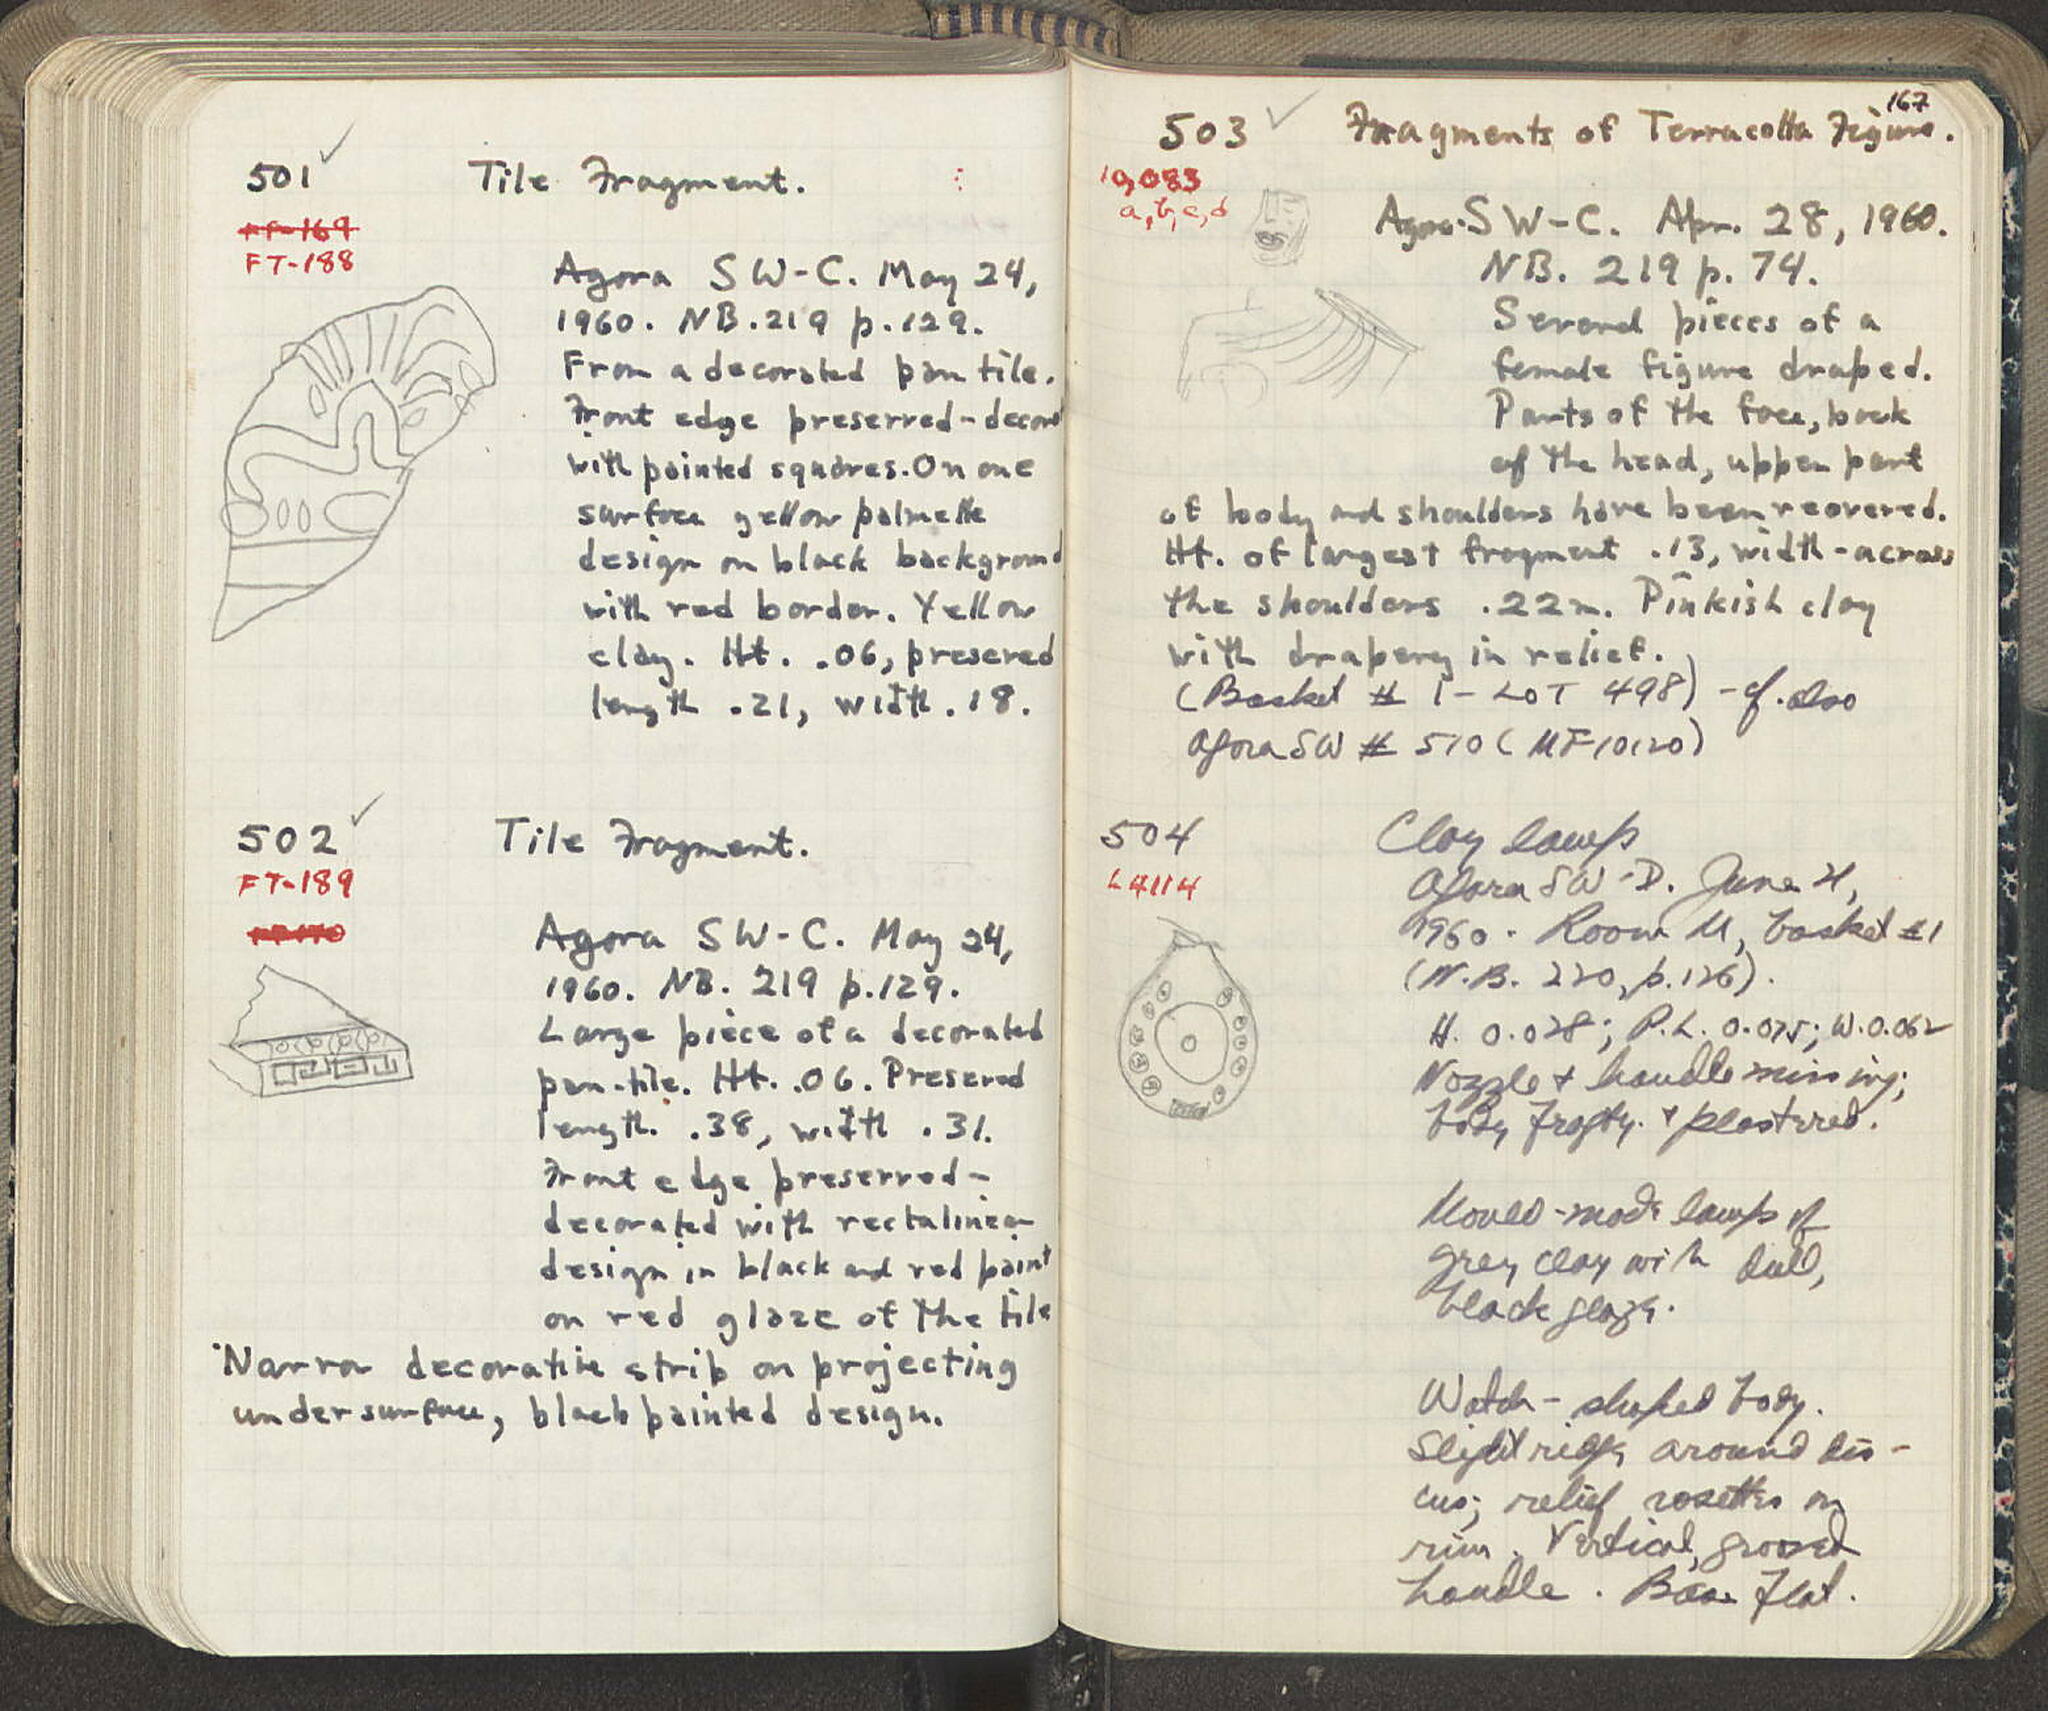 501
Tile Fragment.
FT-188
Agora SW-C. May 24,
1960. NB.219 p.129.
From a decorated pan tile.
Front edge preserved-decor
with painted squares. On one
surface yellow palmette
design on black background
with red border. Yellow
clay. Ht. .06, presered
length .21, width .18.
502
Tile Fragment.
FT-189
Agora SW-C. May 24,
1960. NB. 219 p.129.
Large piece of a decorated
pan-tile. Ht. .06. Presered
length. .38, width .31.
Front edge preserved-
decorated with rectalinear
design in black and red paint
on red glaze of the tile
Narrow decorative strip on projecting
undersurface, black painted design.
167
503
Fragments of Terracotta Figure.
10,083
a,b,c,d
Agora SW-C. Apr. 28, 1960.
NB. 219 p. 74.
Several pieces of a
female figure draped.
Parts of the face, back
of the head, upper part
of body and shoulders have been reovered.
Ht. of largest fragment .13, width-across
the shoulders .22m. Pinkish clay
with drapery in relief.
(Basket # 1 - LOT 498) - cf. also
Agora SW # 510 (MF 10120)
504
Clay lamp
L4114
Agora SW-D. June 4,
1960. Room M, basket #1
(N.B. 220, p.126).
H. 0.028; P.L. 0.075; W.0.062
Nozzle + handle missing;
body fragty. + plastered.
Mould-made lamp of
grey clay with dull,
black glaze.
Watch-shaped body.
Slight ridge around dis-
cus; relief rosettes on
rim. Vertical, grooved
handle. Base flat.